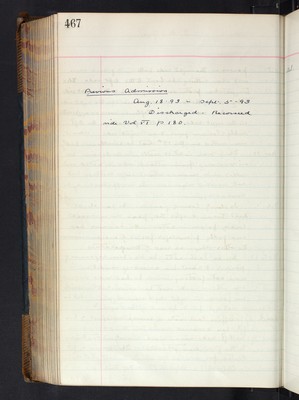 467
Previous Admission
Aug. 18·93 – Sept. 5·93
Discharged – Recovered
vide Vol. VI. p 180.